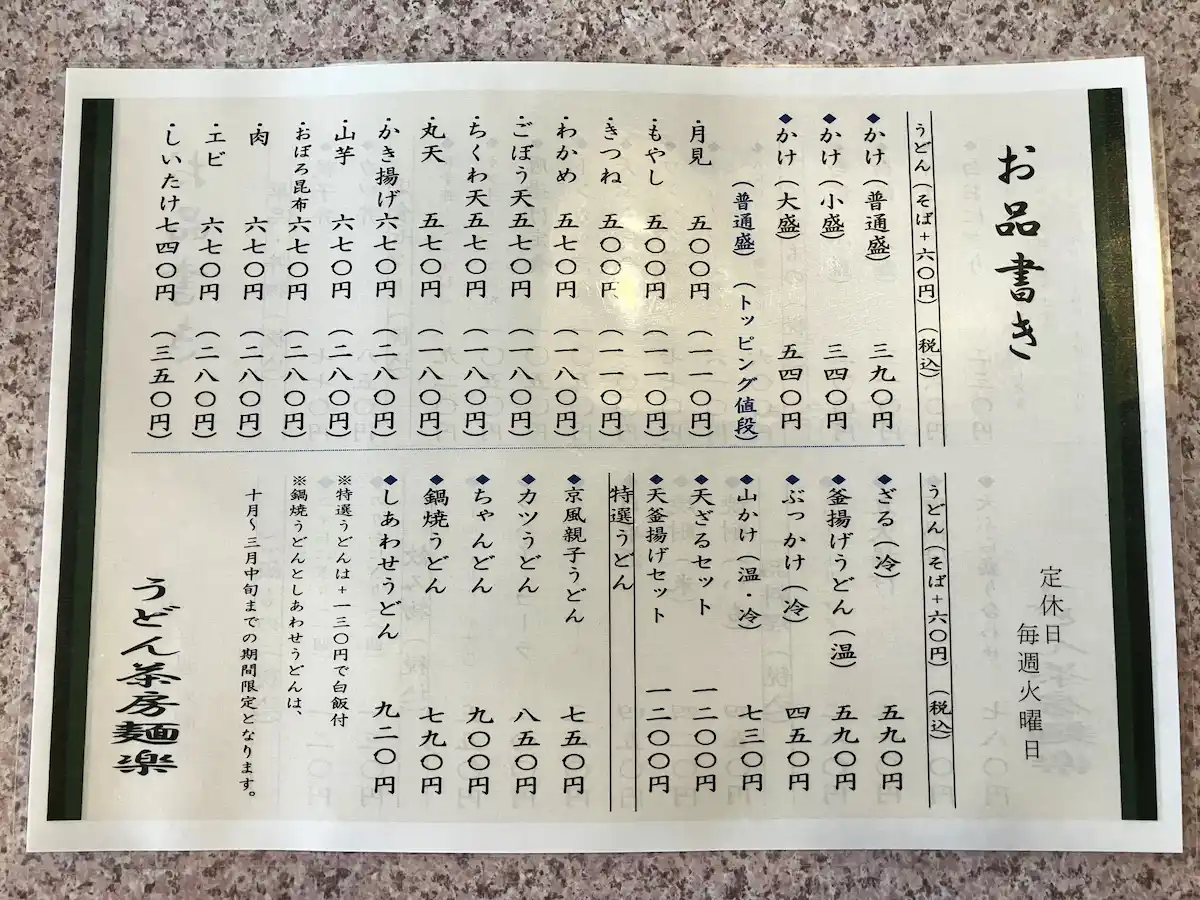 お品書き
うどん(そば+六〇円) (税込)
◆かけ(普通盛) 三九〇円
◆かけ(小盛) 三四〇円
◆かけ(大盛) 五四〇円
(普通盛) (トッピング値段)
・月見 五〇〇円 (一一〇円)
・もやし 五〇〇円 (一一〇円)
・きつね 五〇〇円 (一一〇円)
・わかめ 五七〇円 (一八〇円)
・ごぼう天 五七〇円 (一八〇円)
・ちくわ天 五七〇円 (一八〇円)
・丸天 五七〇円 (一八〇円)
・かき揚げ 六七〇円 (二八〇円)
・山芋 六七〇円 (二八〇円)
・おぼろ昆布 六七〇円 (二八〇円)
・肉 六七〇円 (二八〇円)
・エビ 六七〇円 (二八〇円)
・しいたけ 七四〇円 (三五〇円)
定休日
毎週火曜日
うどん(そば+六〇円) (税込)
◆ざる(冷) 五九〇円
◆釜揚げうどん(温) 五九〇円
◆ぶっかけ(冷) 四五〇円
◆山かけ(温・冷) 七三〇円
◆天ざるセット 一二〇〇円
◆天釜揚げセット 一二〇〇円
特選うどん
◆京風親子うどん 七五〇円
◆カツうどん 八五〇円
◆ちゃんどん 九〇〇円
◆鍋焼うどん 七九〇円
◆しあわせうどん 九二〇円
※特選うどんは+一三〇円で白飯付
※鍋焼うどんとしあわせうどんは、
十月~三月中旬までの期間限定となります。
うどん茶房麺楽